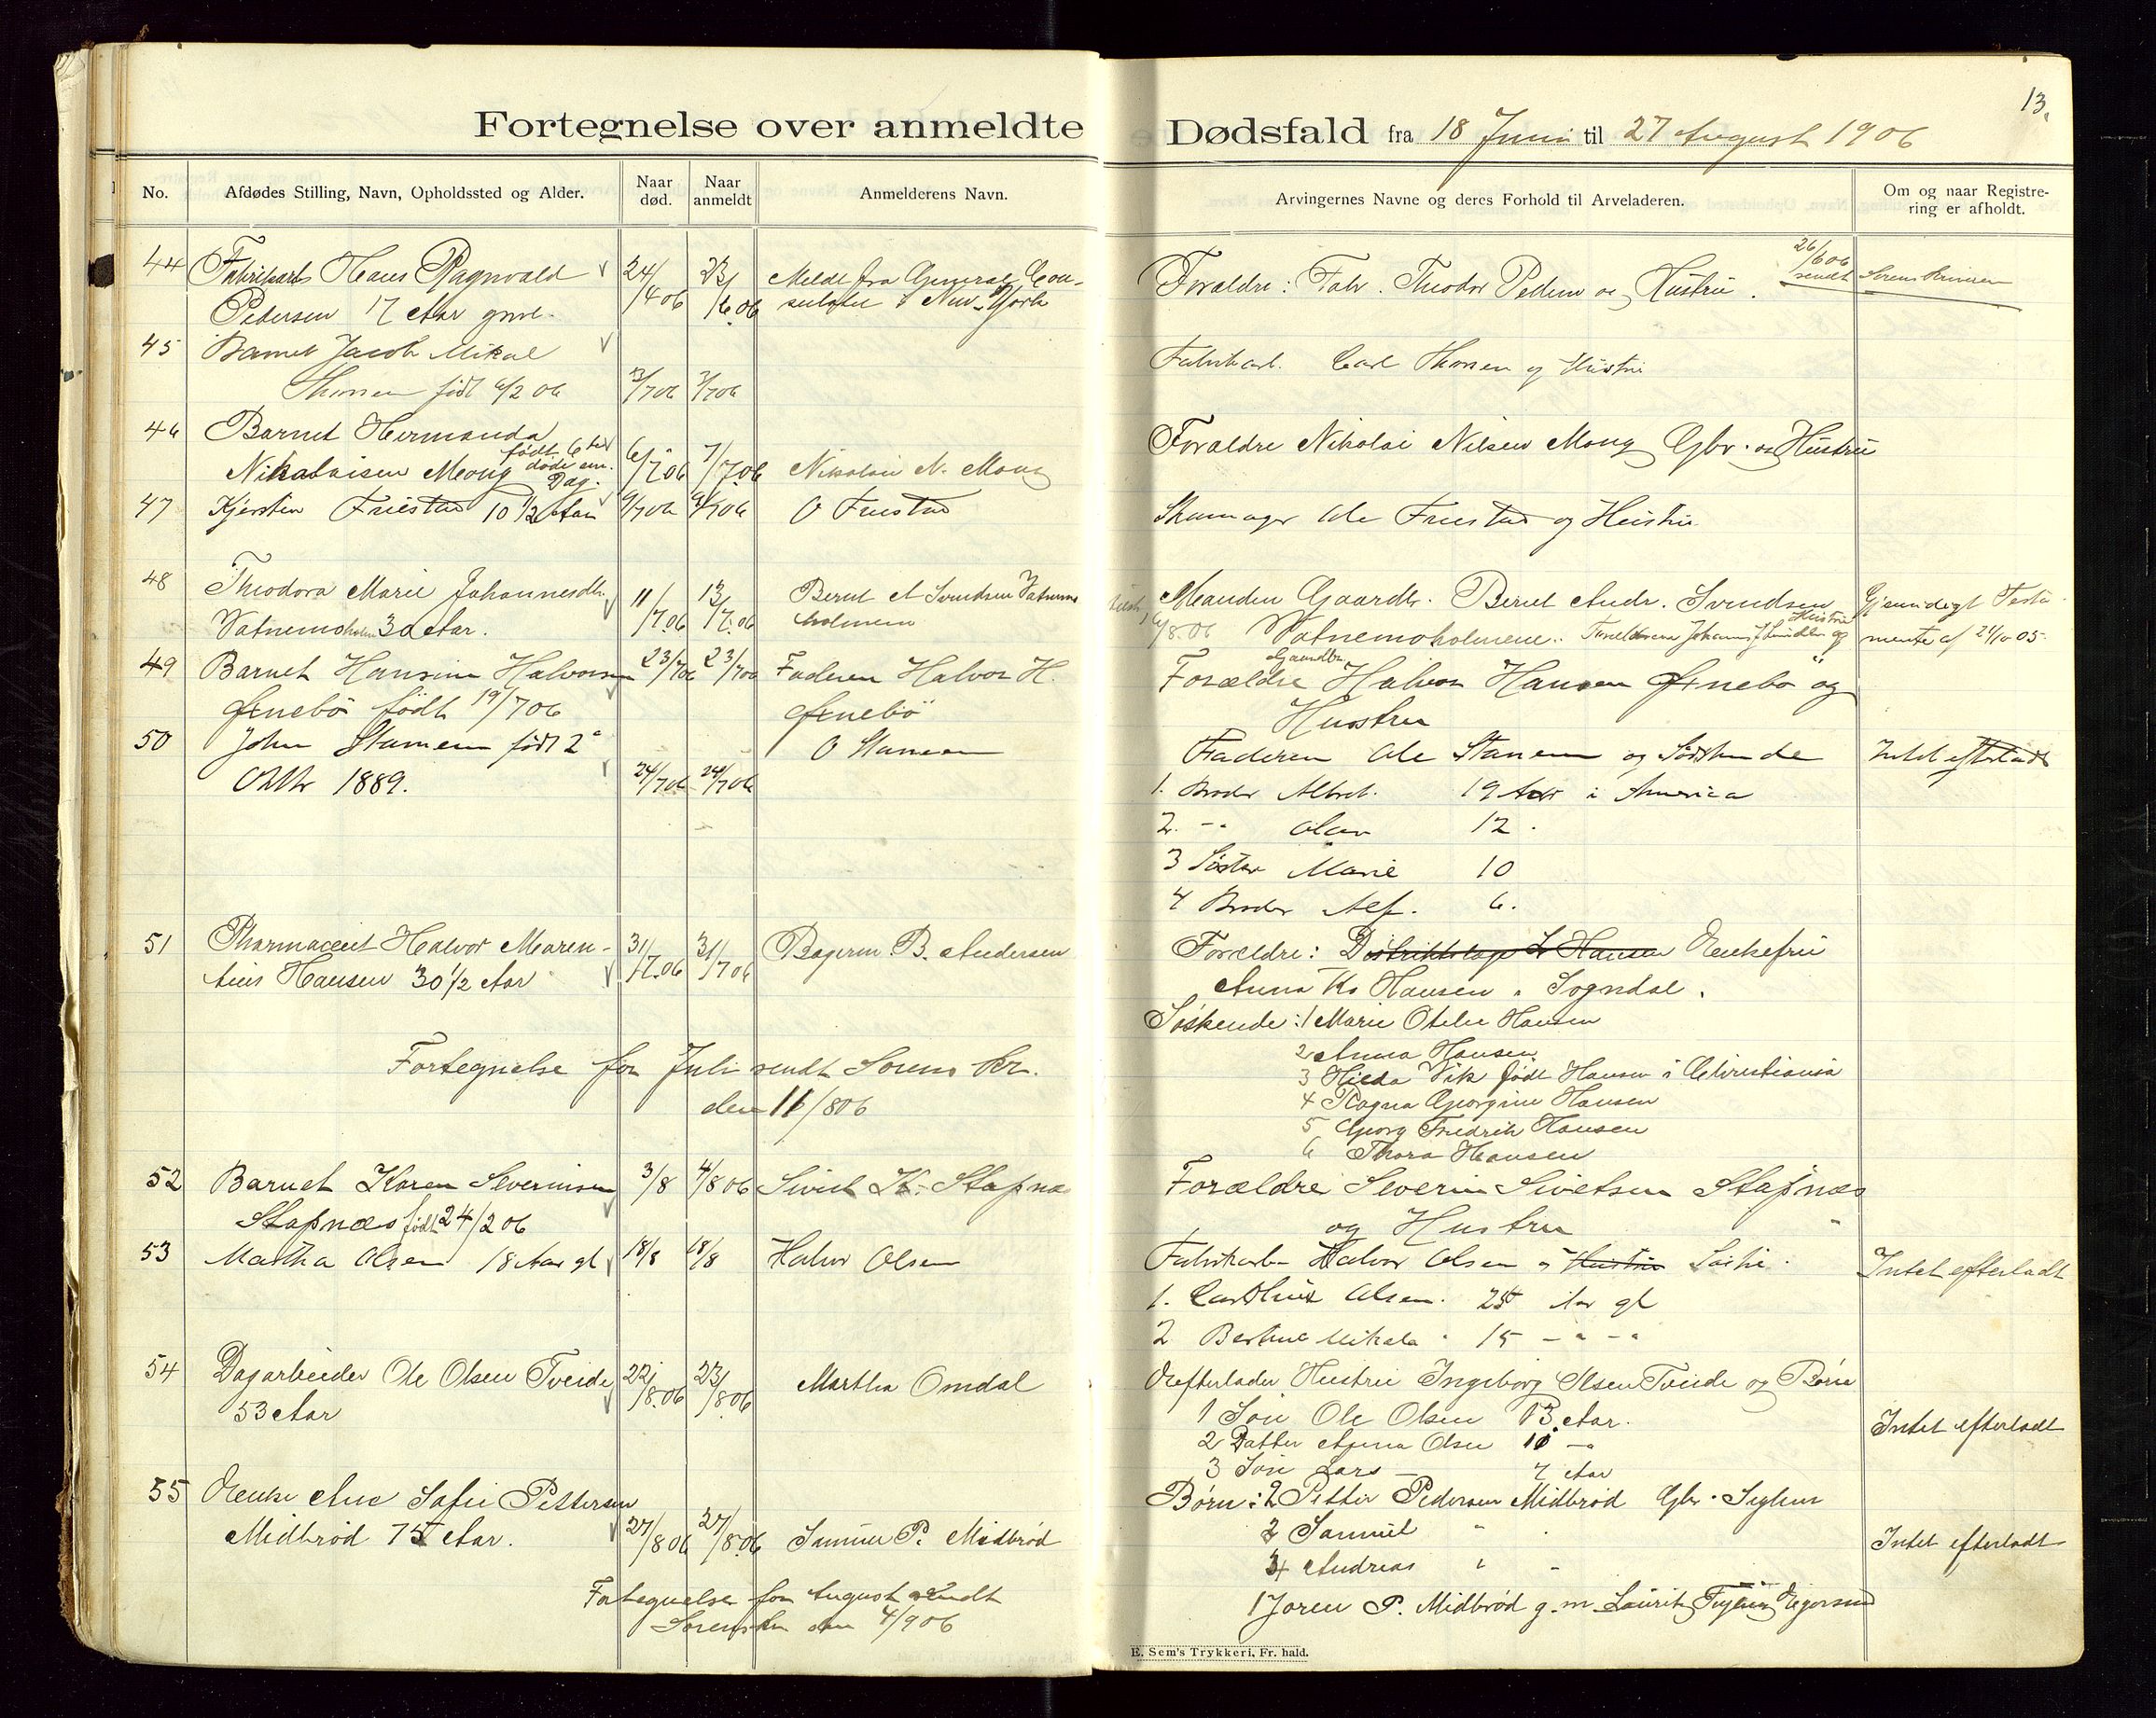 13.
Fortegnelse over anmeldte Dødsfald fra 18 Juni til 27 August 1906
No. Afdødes Stilling, Navn, Opholdssted og Alder. Naar død. Naar anmeldt Anmelderens Navn. Arvingernes Navne og deres Forhold til Arveladeren. Om og naar Registrering er afholdt.
44 Fabrikarb Hans Ragnvald 24/4 06 23/6 06 Meldt fra General Con-
Pedersen 17 Aar gml. sulatet i New-York
Forældre: Fabr. Theodor Pedersen og Hustru. 26/6 06 sendt
45 Barnet Jacob Mikal
Thorsen født 6/2 06 3/7 06 3/7 06
Fabrikarb. Carl Thorsen og Hustru
46 Barnet Hermanda
født 6te
Nikolaisen Mong døde sm. Dag. 6/7 06 7/7 06 Nikolai N. Mong
Forældre Nikolai Nilsen Mong Gbr. og Hustru
47 Kjersten Friestad 10 1/2 Aar 9/7 06 9/7 06 O Friestad
Skomager Ole Friestad og Hustru
48 Theodora Marie Johannesdtr. 11/7 06 13/7 06 Bernt A Svendsen Vatnemo
Vatnemoholm 30 Aar. holmene
Manden Gaardbr. Bernt Andr. Svendsen
6/8.06 Vatnemoholmene. Hustru
Gjensidigt Testa-
mente af 24/10 05
49 Barnet Hansine Halvorsen 23/7 06 23/7 06 Faderen Halvor H.
Ørnebö født 19/7 06 Ørnebö
Gaardbr.
Forældre Halvor Hansen Ørnebö og
Hustru
50 John Stamem født 2
Oktbr 1889. 24/7 06 24/7 06 O Stamem
Faderen Ole Stamem og Södskende Intet efterladt
1. Broder Albert. 19 Aar i America
2. -" Olav 12.
3 Søster Marie 10
4 Broder Alf. 6.
51 Pharmaceut Halvor Maren- 31/7.06 31/7 06 Bagerm. B. Andersen
tius Hansen 30 1/2 Aar
Forældre: Distriktslæge L Hansen Enkefru
Anna K. Hansen, Sogndal.
Søskende: 1 Marie Otelie Hansen
2 Anna Hansen
3 Hilda Vik født Hansen i Christiania
4 Ragna Georgine Hansen
5 Georg Fredrik Hansen
6 Thora Hansen
Fortegnelse for Juli sendt Sorens kr.
den 11/8 06
52 Barnet Karen Severinsen 3/8 4/8 06 Sivert K. Stapnæs
Stapnæs født 24/2 06
Forældre Severin Sivertsen Stapnæs
og Hustru
53 Martha Olsen 18 Aar gl 18/8 18/8 Halvor Olsen
Fabrikarb. Halvor Olsen og Hustru Intet efterladt
1. Olsen. 25 Aar gl
2 Bertine Mikala " 15 - " - "
54 Dagarbeider Ole Olsen Tveide 22/8.06 23/8 06 Martha Omdal
53 Aar
Efterlader Hustru Ingeborg Olsen Tveide og Børn
1 Søn Ole Olsen 13 Aar. Intet efterladt
2 Datter Anna Olsen 10 -"
3 Søn Lars - 7 Aar
55 Enke Ane Sofie Pettersen
Midbrød 75 Aar. 27/8 06 27/8.06 Samuel P. Midbrød
Børn: 2 Petter Pedersen Midbrød Gbr. Seglem
3 Samuel " .
4 Andreas " - Intet efterladt
1 Joren P. Midbrød g. m. Egersund
Fortegnelse for August sendt
Sorenskr den 4/9 06
E. Sem's Trykkeri, Fr. hald.